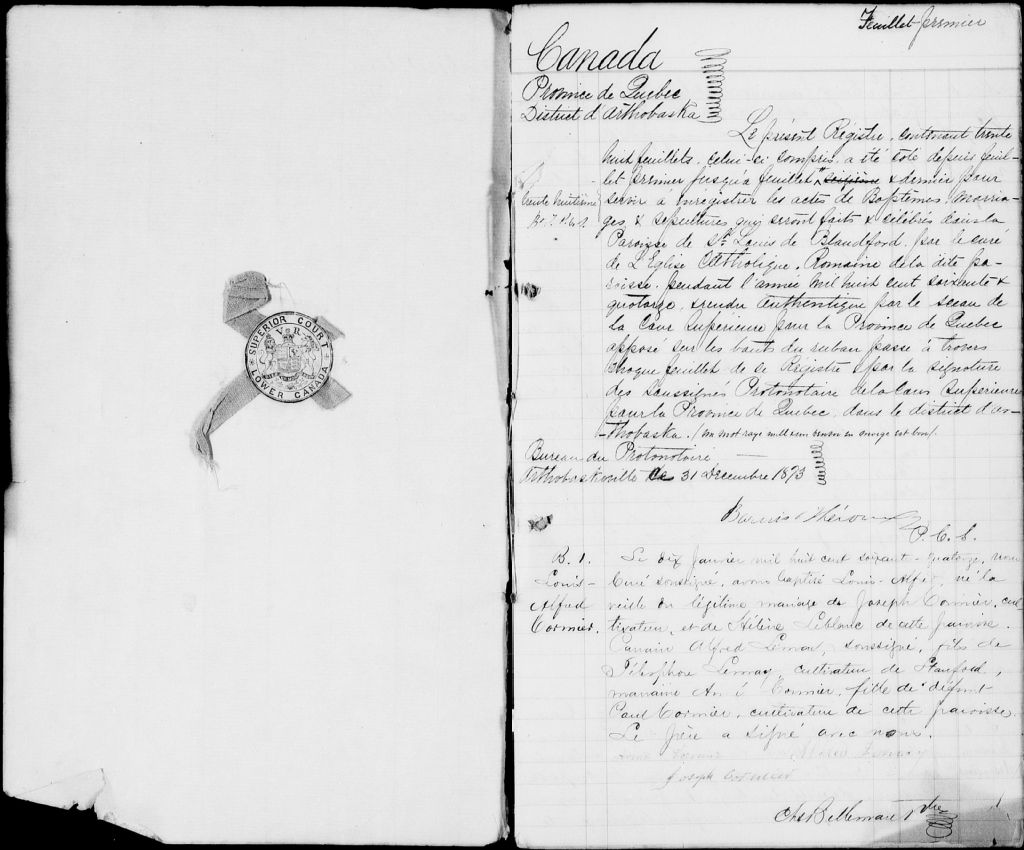 SUPERIOR COURT
V R
LOWER CANADA
Feuillet premier
Canada
Province de Quebec
District d'Arthabaska
Le présent Régistre, contenant trente
huit feuillets, celui-ci compris a été coté depuis feuil-
let premier jusqu'à feuillet & dernier pour
trente huitième
servir à enregistrer les actes de Baptêmes, marria-
ges & sepultures qui seront faits & célébrés dans la
Paroisse de St. Louis de Blandford, par le curé
de L'Eglise Catholique, Romaine de la dite pa-
roisse, pendant l'année mil huit cent soixante &
quatorze, & rendu authentique par le sceau de
la Cour Supérieure pour la Province de Quebec
apposé sur les bouts du ruban passé à travers
chaque feuillet de ce Régistre & par la signature
des soussignés Protonotaire de la Cour Supérieure
pour la Province de Quebec, dans le district d'Ar-
thabaska. (un mot rayé nul & un renvoi en marge est bon).
Bureau du Protonotaire
Arthabaskaville 31 Decembre 1873
P. C. S.
B. 1.
Louis-
Alfred
Cormier.
Le dix Janvier mil huit cent soixante-quatorze, nous
Curé soussigné, avons baptisé Louis-Alfred, né la
veille du légitime mariage de Joseph Cormier, cul-
tivateur, et de Hélène Leblanc de cette paroisse.
Parrain Alfred Lemay, soussigné, fils de
Télesphore Lemay, cultivateur de Stanfold,
marraine Cormier, fille de défunt
Paul Cormier, cultivateur de cette paroisse.
Le père a signé avec nous.
Alfred Lemay
Joseph Cormier
Chs Bellemare Ptre